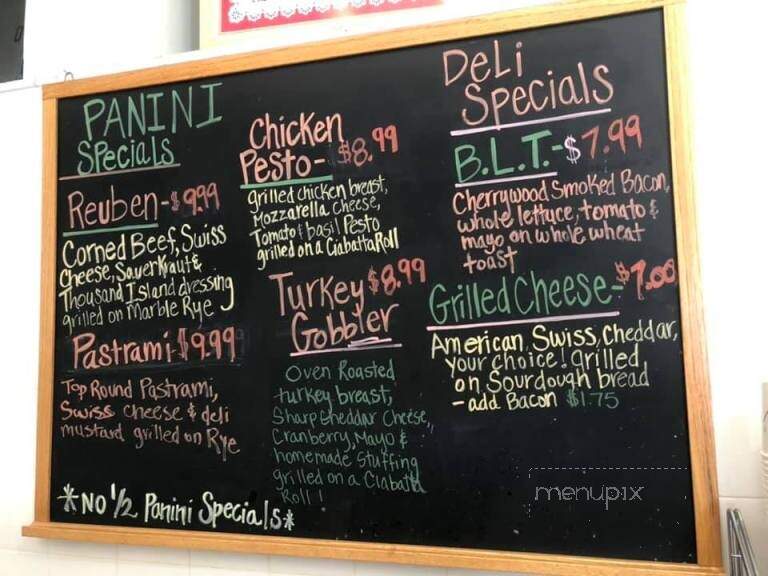 PANINI
Specials
Reuben - $9.99
Corned Beef, Swiss
Cheese, Sauerkraut &
Thousand Island dressing
grilled on Marble Rye
Pastrami - $9.99
Top Round Pastrami,
Swiss cheese & deli
mustard grilled on Rye
*NO ½ Panini Specials*
Chicken
Pesto - $8.99
grilled chicken breast,
Mozzarella Cheese,
Tomato & basil Pesto
grilled on a Ciabatta Roll
Turkey $8.99
Gobbler
Oven Roasted
turkey breast,
Sharp Cheddar Cheese,
Cranberry, Mayo &
homemade Stuffing
grilled on a Ciabatta
Roll!
Deli
Specials
B.L.T. - $7.99
Cherrywood Smoked Bacon,
whole lettuce, tomato &
mayo on whole wheat
toast
Grilled Cheese - $7.00
American, Swiss, Cheddar,
your choice! grilled
on Sourdough bread
- add Bacon $1.75
menupix